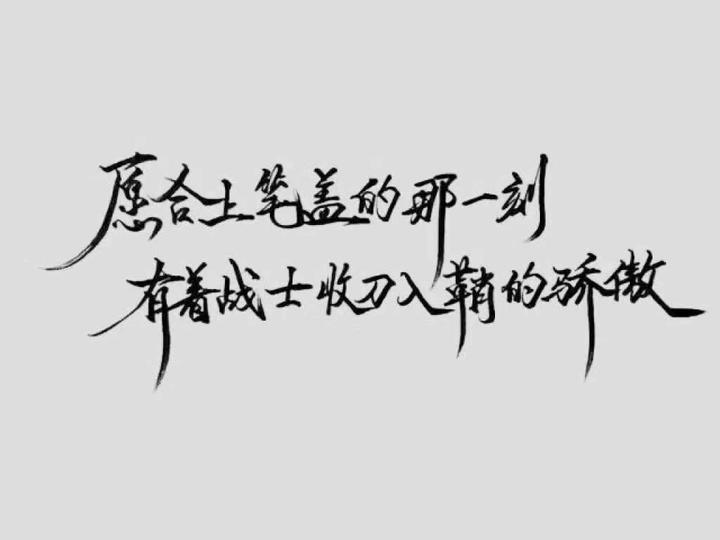 愿合上笔盖的那一刻
有着战士收刀入鞘的骄傲